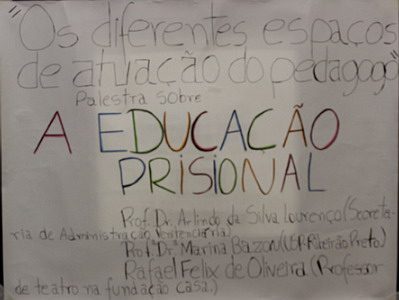 "Os diferentes espaços
de atuação do pedagogo"
Palestra sobre
A EDUCAÇÃO
PRISIONAL
Prof. Dr. Arlindo da Silva Lourenço (Secreta-
ria de Administração Penitenciária)
Prof.ª Dr.ª Marina Bazon (USP-Ribeirão Preto)
Rafael Felix de Oliveira (Professor
de teatro na fundação casa.)